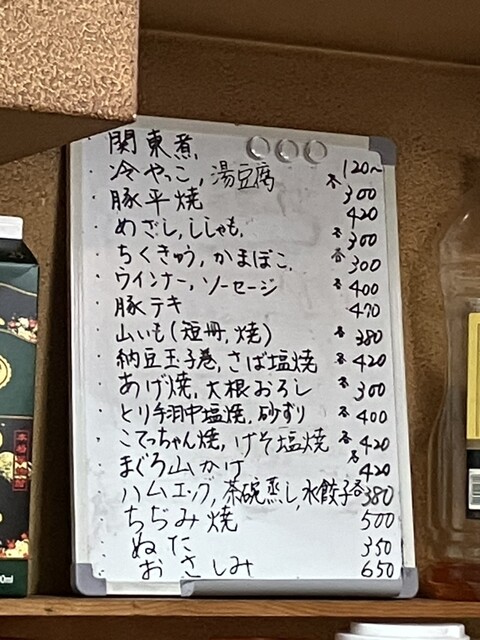 ・関東煮 120~
・冷やっこ,湯豆腐 各300
・豚平焼 420
・めざし,ししゃも, 各300
・ちくきゅう,かまぼこ, 各300
・ウインナー,ソーセージ 各400
・豚テキ 470
・山いも(短冊,焼) 各380
・納豆玉子巻,さば塩焼 各420
・あげ焼,大根おろし 各300
・とり手羽中塩焼,砂ずり 各400
・こてっちゃん焼,げそ塩焼 各420
・まぐろ山かけ 各420
・ハムエッグ,茶碗蒸し,水餃子各380
・ちぢみ焼 500
・ぬた 350
・おさしみ 650